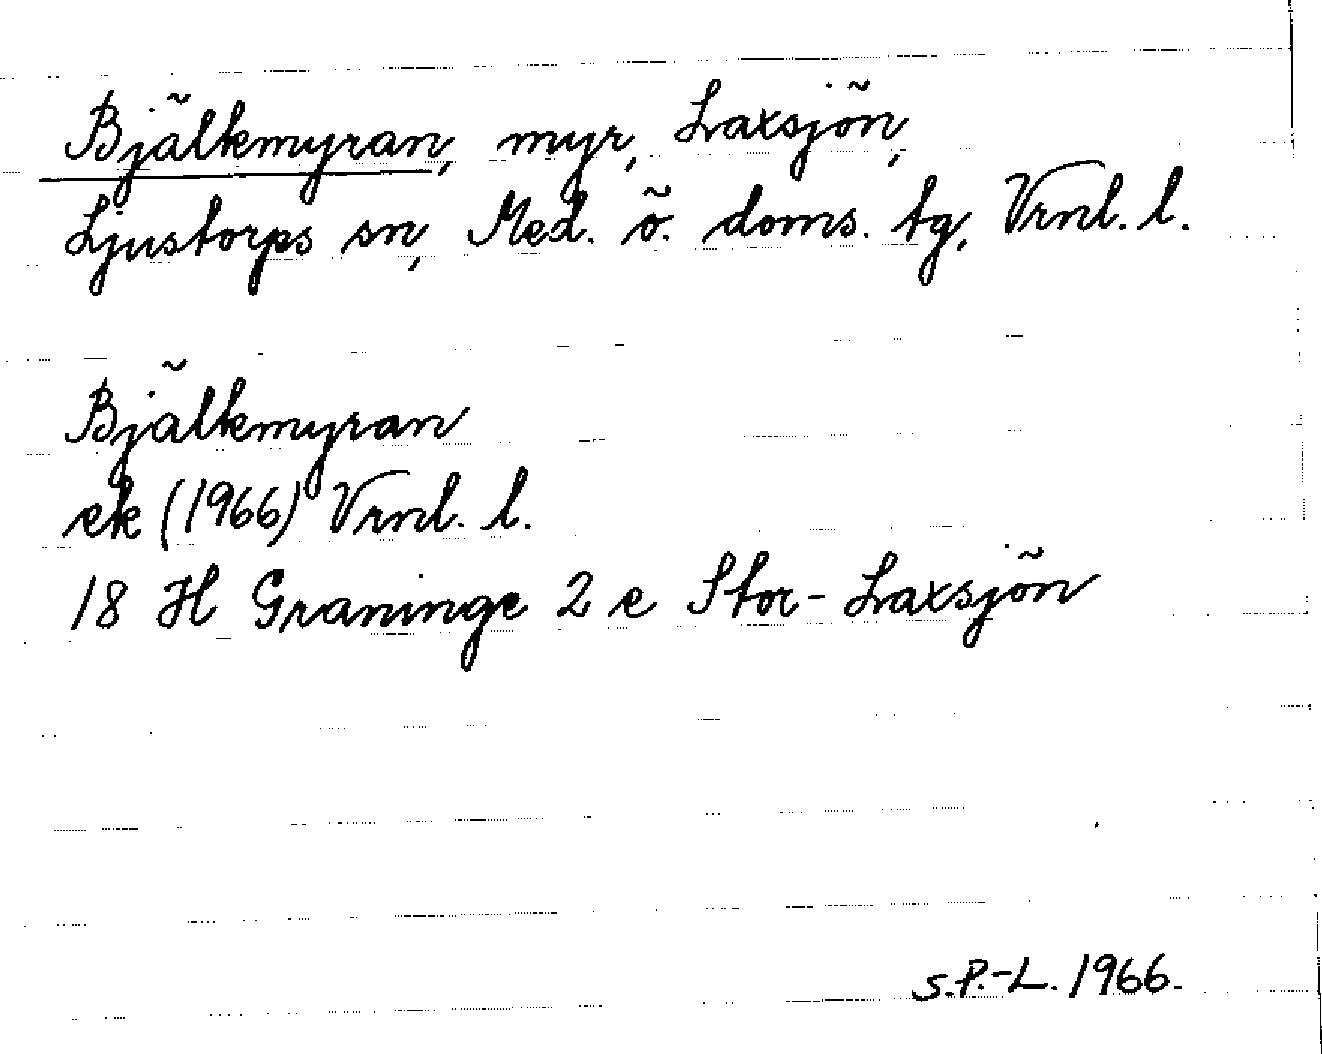 Bjälkmyran, myr, Laxsjön,
Ljustorps sn, Med. ö. doms. tg, Vrnl. l.
Bjälkmyran
ek (1966) Vrnl. l.
18 H Graninge 2 e Stor-Laxsjön
S.P.-L. 1966.